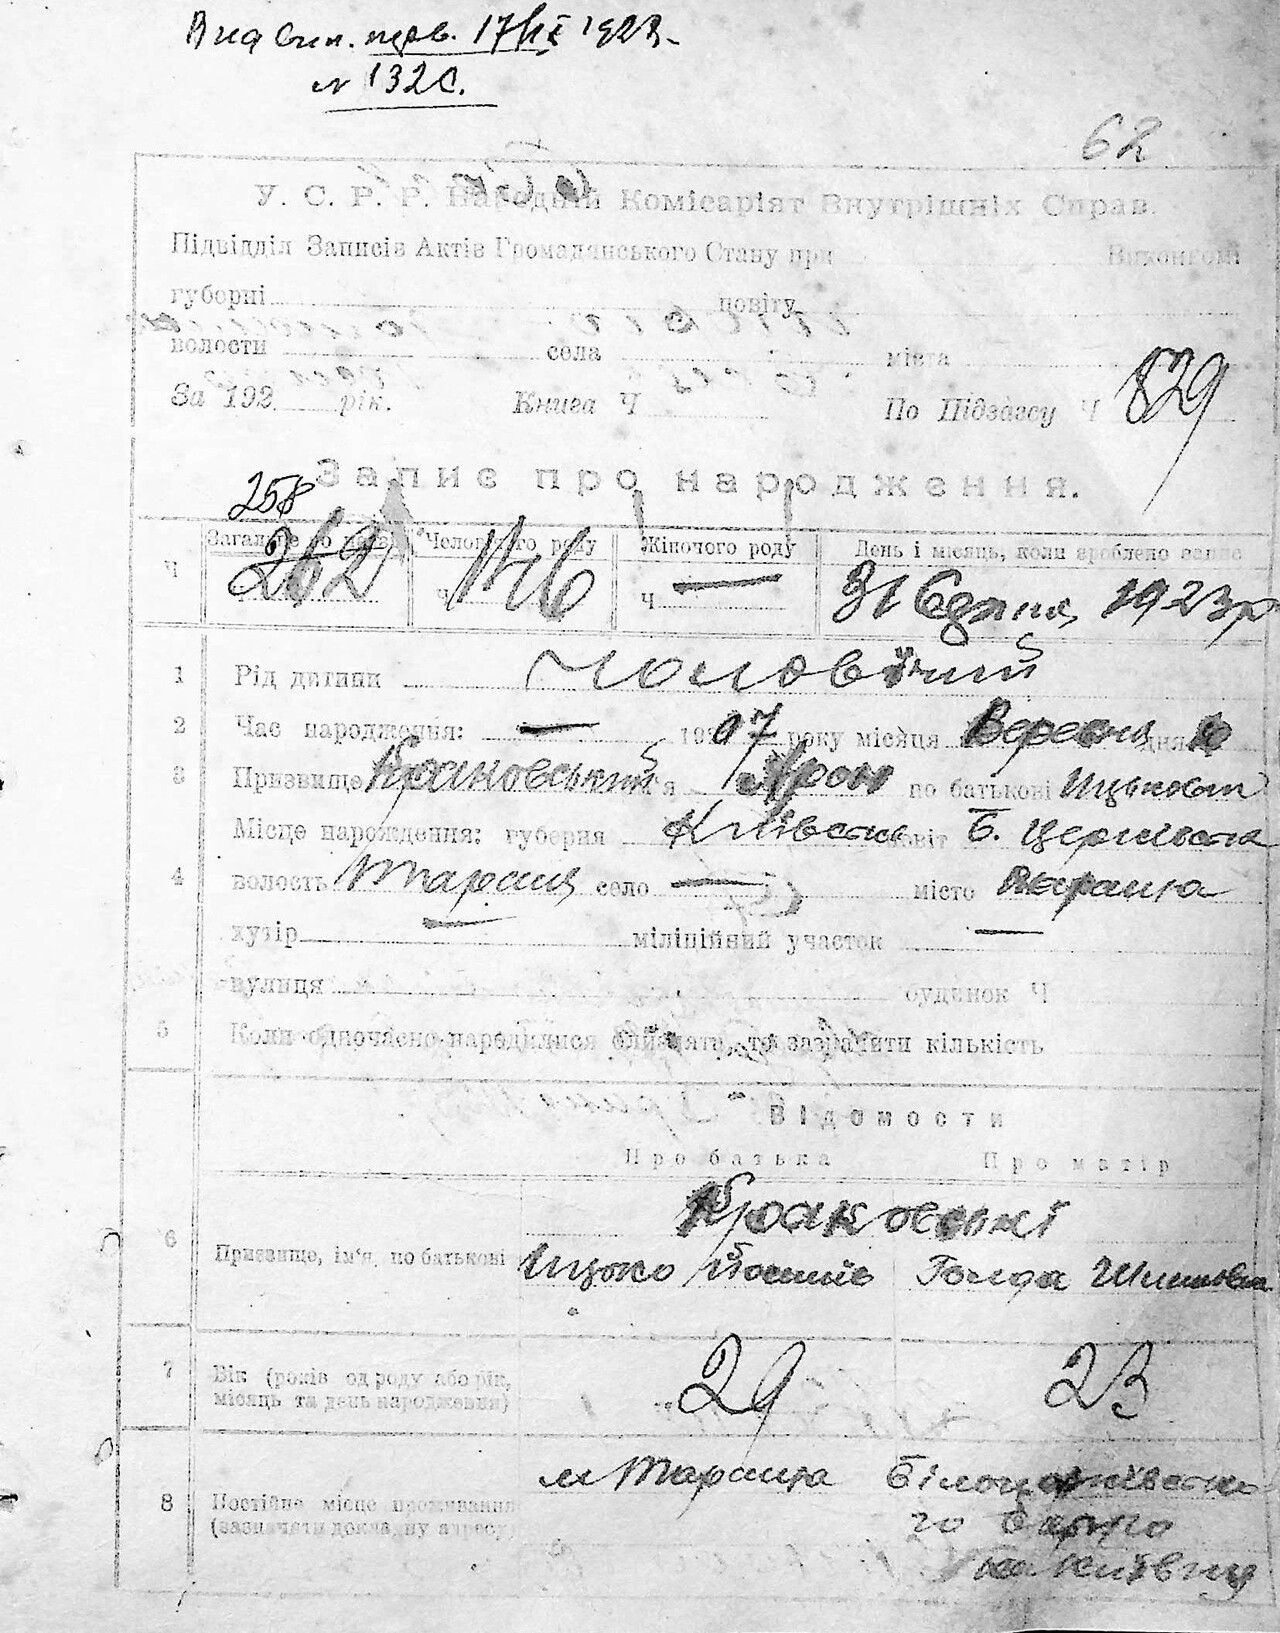 Вид вип. перв. 17/IX 1923.
№ 132С.
62
У. С. Р. Р. Народній Комісаріят Внутрішніх Справ.
Підвідділ Записів Актів Громадянського Стану при Виконкомі
губерні повіту
волости села міста
За 192 рік. Книга Ч По Підзагсу Ч 829
Запис про народження.
258
Загальне Чоловічого роду Жіночого роду День і місяць, коли зроблено запис
Ч 262 ч 146 ч — 31 1923р
1 Рід дитини Чоловічий
2 Час народження: — 192 07 року місяця Вересня дня 6
3 Призвище Краковський Арон по батькові Ицькович
Місце народження: губерня Київськ повіт Б. Церківськ
4 волость Таращ село — місто Тараща
хутір — міліційний участок —
вулиця будинок Ч
5 Коли одночасно народилися близнята, то зазначити кількість
Відомости
Про батька Про матір
Краковські
6 Призвище, ім'я, по батькові Ицько Йосипів Голда
7 Вік (років од роду або рік, 29 23
місяць та день народження)
м Тараща Білоцерківсько
8 Постійне місце проживання го
(зазначити докладну адресу) на Київщ